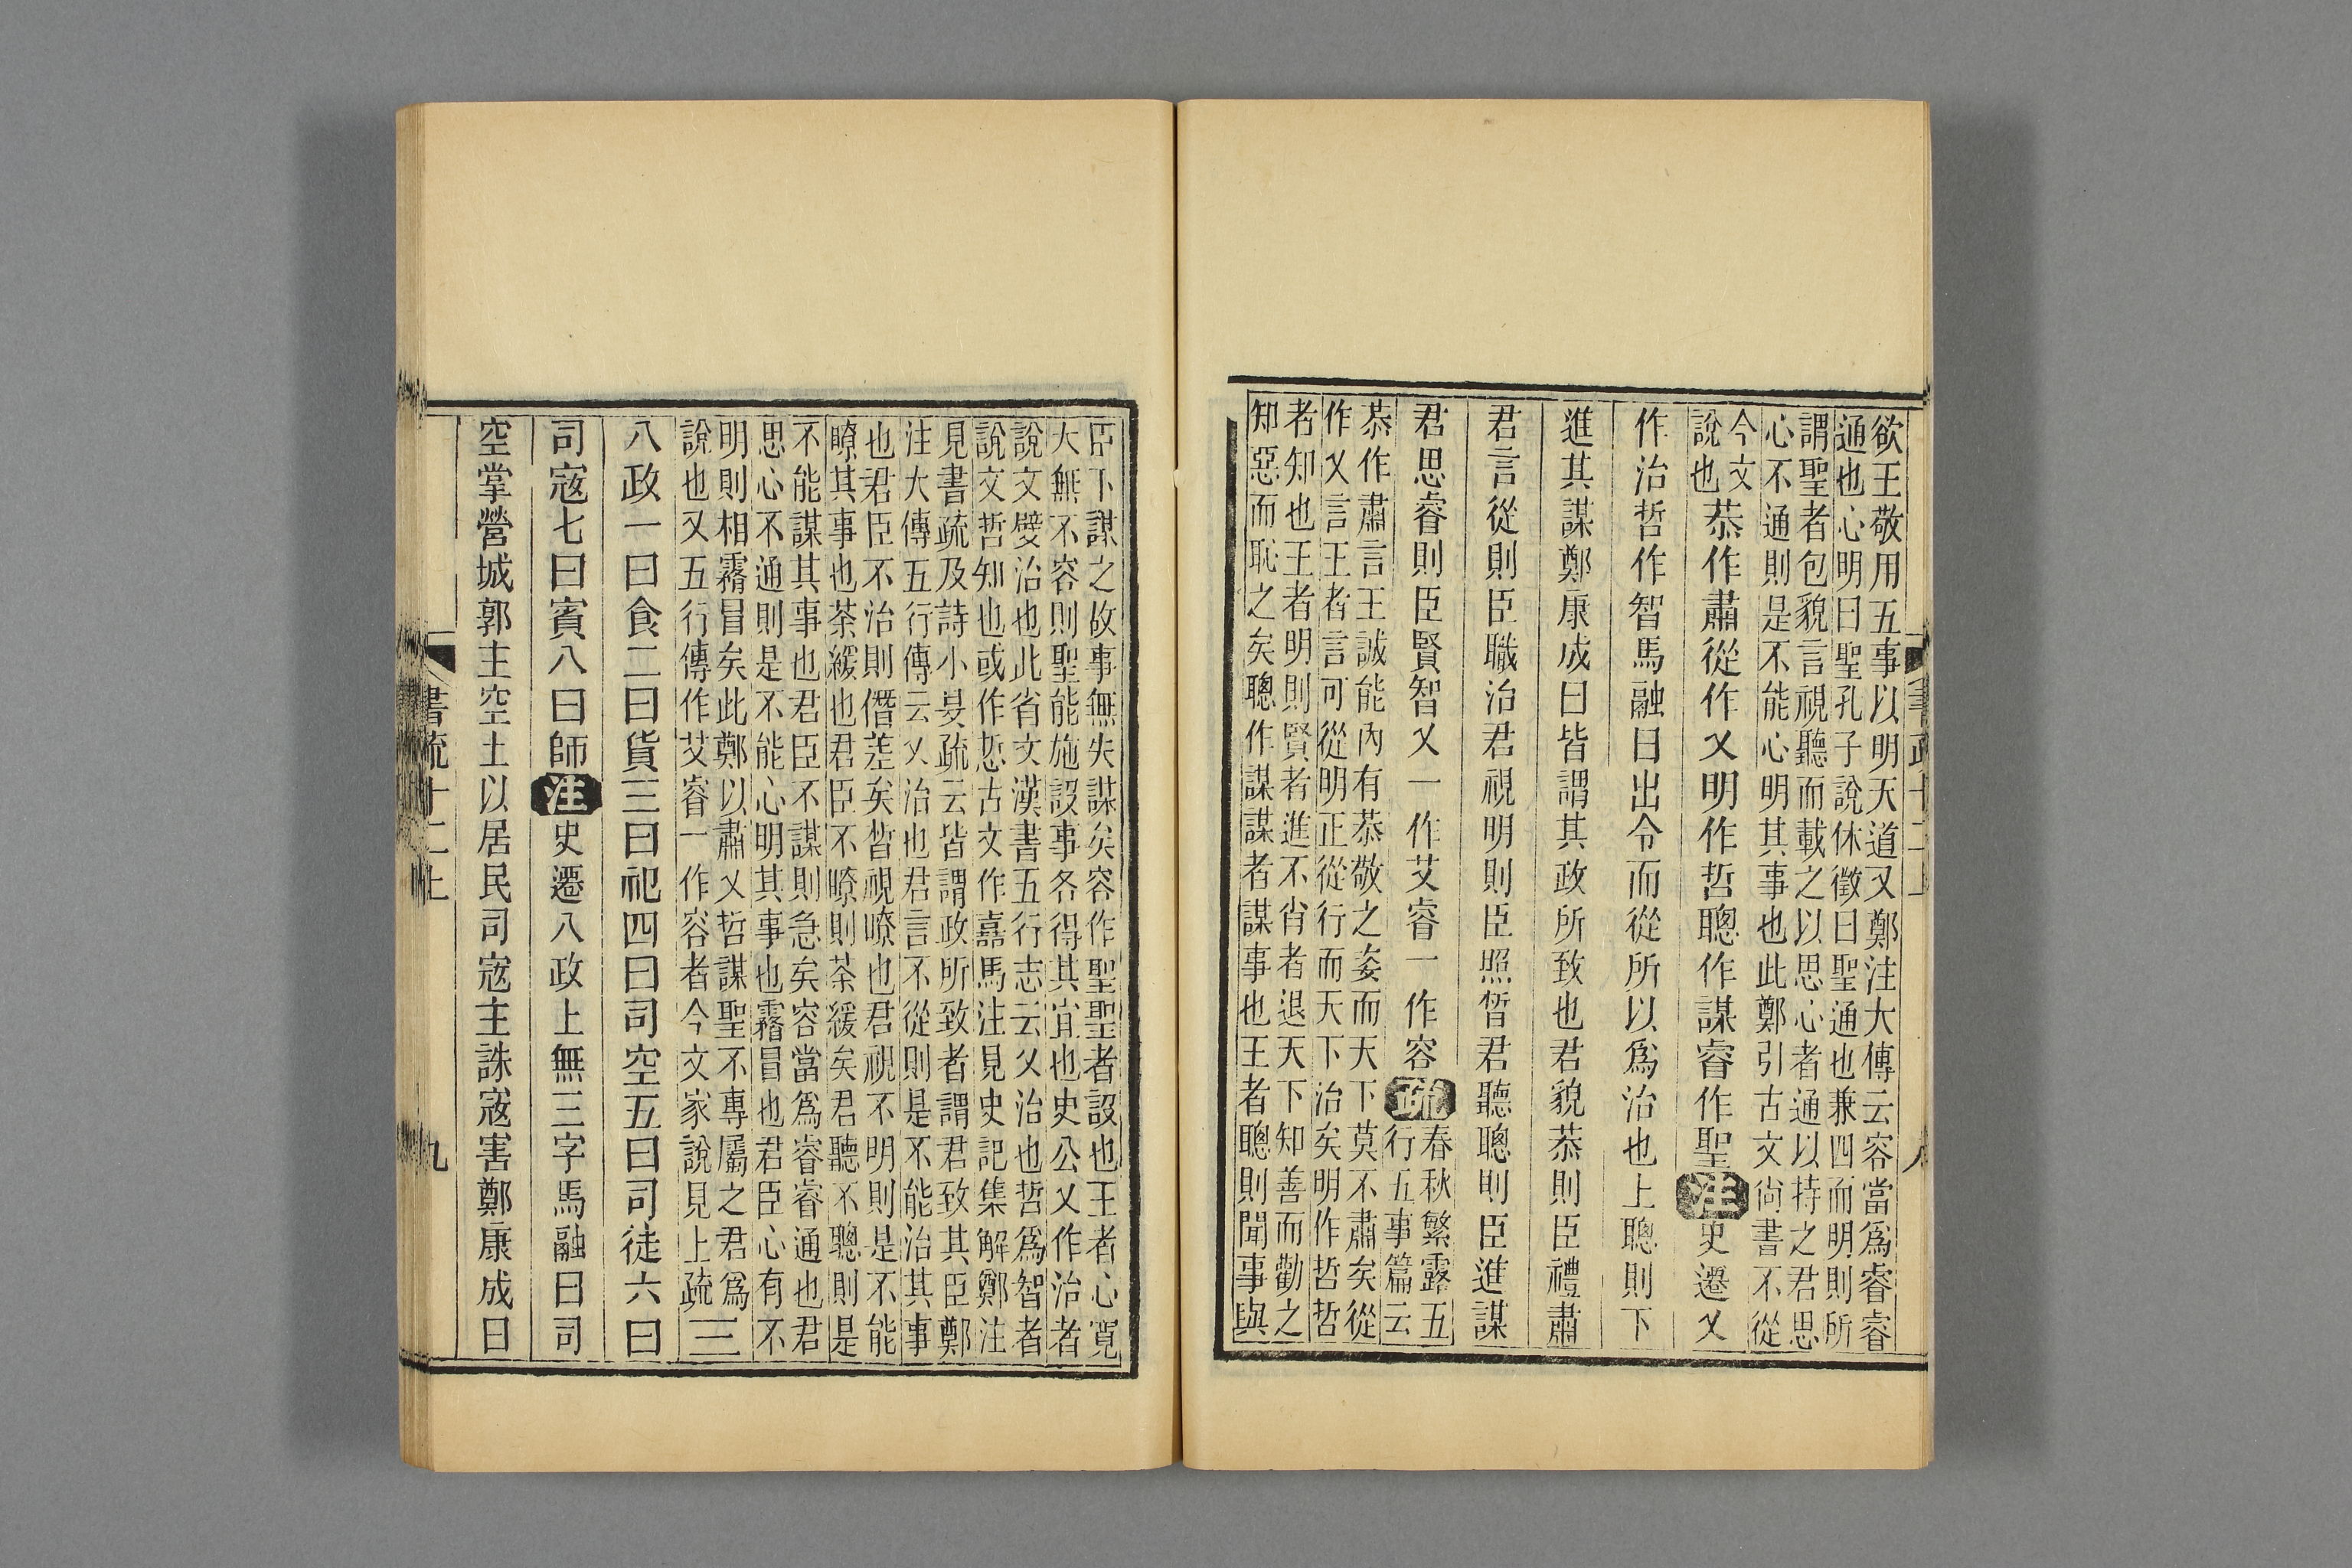 欲王敬用五事以明天道又鄭注大傳云容當爲睿睿
通也心明曰聖孔子說休徵曰聖通也兼四而明則所
謂聖者包貌言視聽而載之以思心者通以持之君思
心不通則是不能心明其事也此鄭引古文尙書不從
今文
說也
恭作肅從作乂明作哲聰作謀睿作聖注史遷乂
作治哲作智馬融曰出令而從所以爲治也上聰則下
進其謀鄭康成曰皆謂其政所致也君貌恭則臣禮肅
君言從則臣職治君視明則臣照晳君聽聰則臣進謀
君思睿則臣賢智乂一作艾睿一作容疏
春秋繁露五
行五事篇云
恭作肅言王誠能內有恭敬之姿而天下莫不肅矣從
作乂言王者言可從明正從行而天下治矣明作哲哲
者知也王者明則賢者進不肖者退天下知善而勸之
知惡而恥之矣聰作謀謀者謀事也王者聰則聞事與
臣下謀之故事無失謀矣容作聖聖者設也王者心寬
大無不容則聖能施設事各得其宜也史公乂作治者
說文嬖治也此省文漢書五行志云乂治也哲爲智者
說文哲知也或作悊古文作嚞馬注見史記集解鄭注
見書疏及詩小旻疏云皆謂政所致者謂君致其臣鄭
注大傳五行傳云乂治也君言不從則是不能治其事
也君臣不治則僭差矣晳視瞭也君視不明則是不能
瞭其事也荼緩也君臣不瞭則荼緩矣君聽不聰則是
不能謀其事也君臣不謀則急矣容當爲睿睿通也君
思心不通則是不能心明其事也霿冒也君臣心有不
明則相霿冒矣此鄭以肅乂哲謀聖不專屬之君爲
說也又五行傳作艾睿一作容者今文家說見上疏三
八政一曰食二曰貨三曰祀四曰司空五曰司徒六曰
司寇七曰賓八曰師注史遷八政上無三字馬融曰司
空掌營城郭主空土以居民司寇主誅寇害鄭康成曰
書疏十二上
九